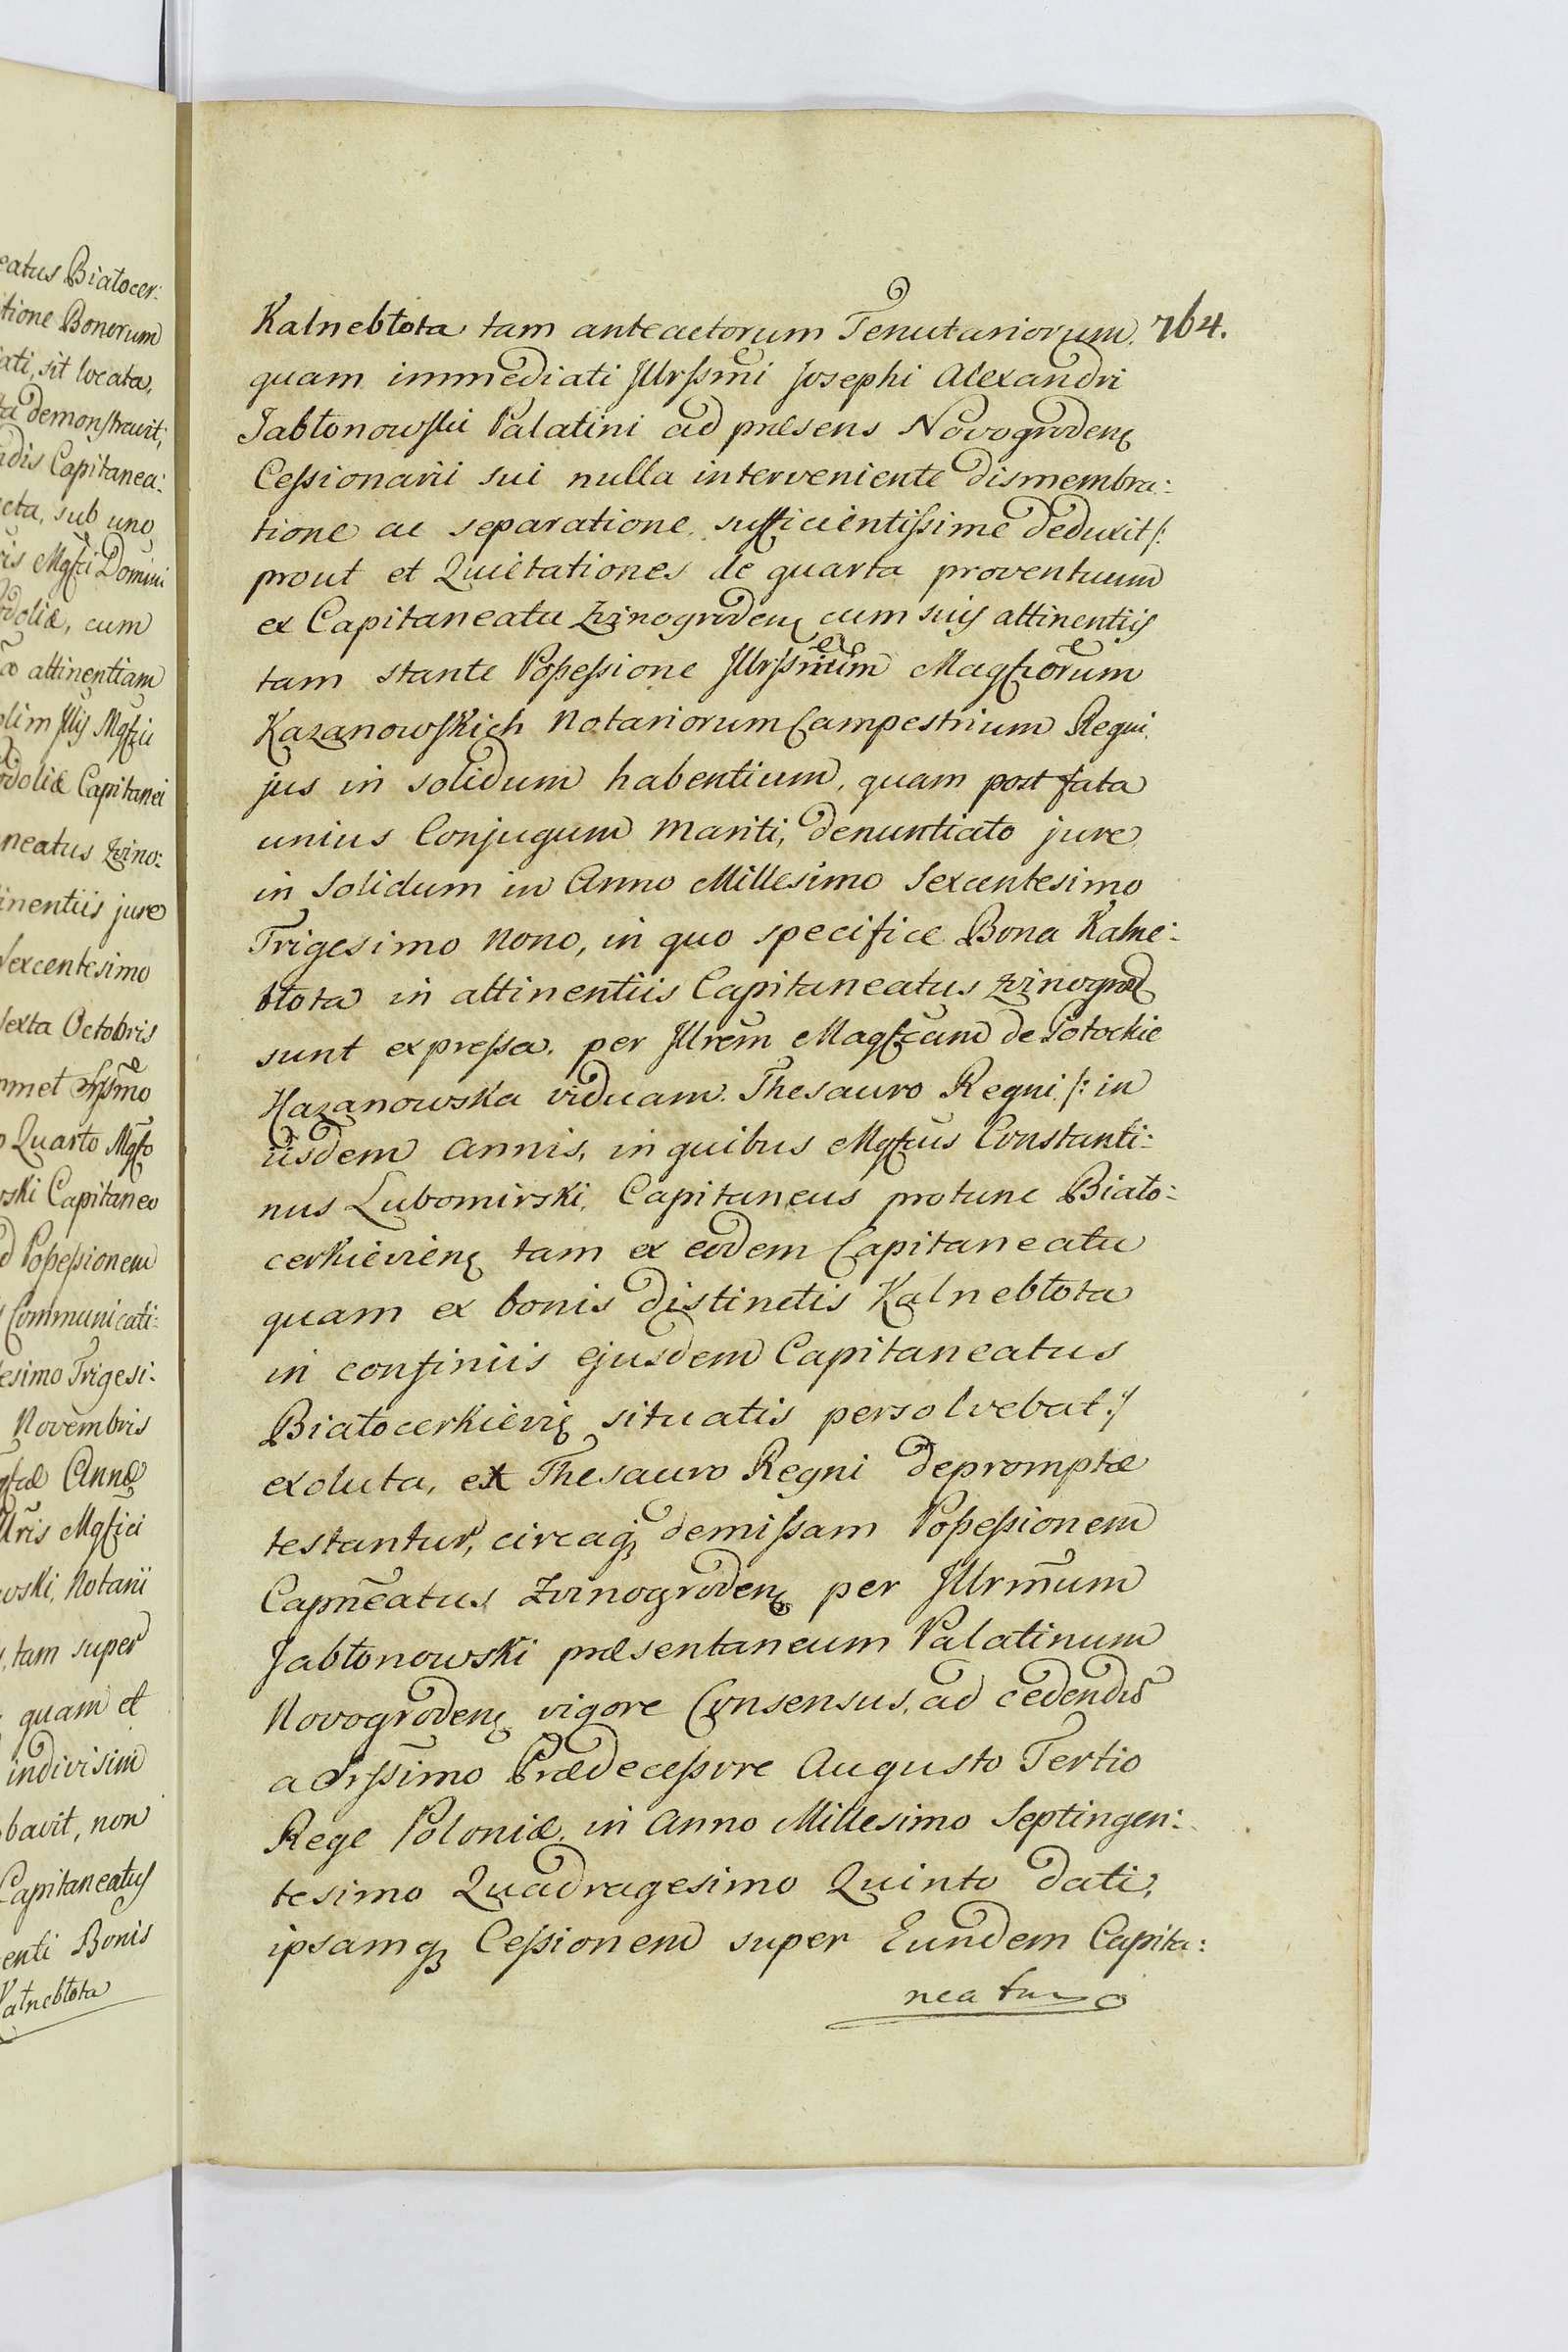 eatus Białocer:
tione Bonorum
iati, sit locata,
ta demonstravit,
adis Capitanea:
cta, sub uno
ris Mgfci Domini
odoliæ, cum
attinentiam
olim
odoliæ Capitanei
neatus Zvino:
tinentiis jure
Sexcentesimo
Sexta Octobris
met
o Quarto Mgfco
wski Capitaneo
d Possessionem
Communicati:
esimo Trigesi:
Novembris
Annæ
Illris Mgfici
wski, Notarii
tam super
quam et
indivisim
bavit, non
Capitaneatus
enti Bonis
Kalnebłota
Kalnebłota tam anteactorum Tenutariorum, 764.
quam immediati Illrssmi Josephi Alexandri
Jabłonowski Palatini ad præsens Novogrodenς
Cessionarii sui nulla interveniente dismembra:
tione ac separatione sufficientissime deduxit /:
prout et Quietationes de quarta proventuum
ex Capitaneatu Zvinogrodenς cum suis attinentiis
tam stante Possessione Magfcorum
Kazanowskich Notariorum Campestrium Regni
jus in solidum habentium, quam post fata
unius Conjugum Mariti, denuntiato jure
in Solidum in Anno Millesimo Sexcentesimo
Trigesimo Nono, in quo specifice Bona Kalne:
błota in attinentiis Capitaneatus Zvinogrod
sunt expressa, per Illrem Magfcam de Potockie
Kazanowska viduam Thesauro Regni /: in
iisdem Annis, in quibus Mgfcus Constanti:
nus Lubomirski, Capitaneus protunc Biało:
cerkievienς tam ex eodem Capitaneatu
quam ex bonis distinctis Kalnebłota
in confiniis ejusdem Capitaneatus
Białocerkieviς situatis persolvebat :/
exoluta, ex Thesauro Regni depromptæ
testantur, circaqȝ demissam Possessionem
Capn̄eatus Zvinogrodenς per Illrm̄um
Jabłonowski præsentaneum Palatinum
Novogrodenς vigore Consensus, ad cedendū
a Srssimo Prædecessore Augusto Tertio
Rege Poloniæ, in Anno Millesimo Septingen:
tesimo Quadragesimo Quinto dati,
ipsamqȝ Cessionem super Eundem Capita:
neatum